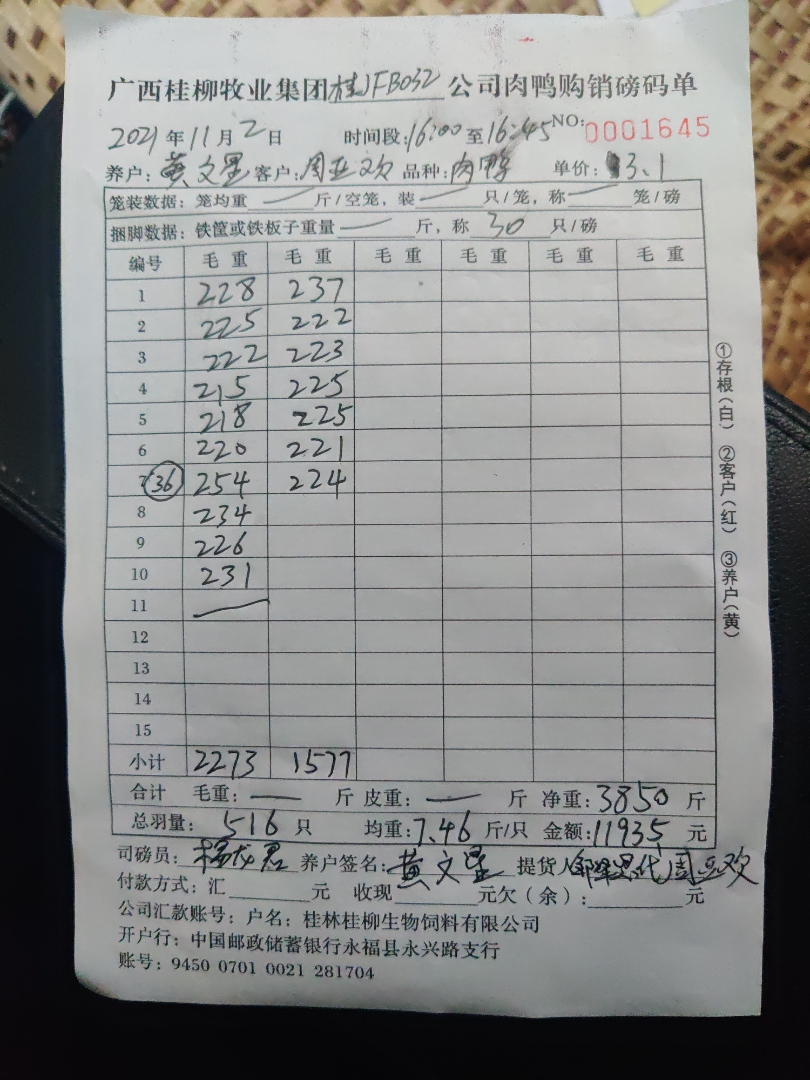 广西桂柳牧业集团桂JFB032公司肉鸭购销磅码单
2021年11月2日 时间段:16:00至16:45 NO:0001645
养户:黄文星 客户:周亚欢 品种:肉鸭 单价:3.1
笼装数据:笼均重—斤/空笼,装—只/笼,称—笼/磅
捆脚数据:铁筐或铁板子重量—斤,称30只/磅
编号 毛重 毛重 毛重 毛重 毛重 毛重
1 228 237
2 225 222
3 222 223
4 215 225
5 218 225
6 220 221
7 (36) 254 224
8 234
9 226
10 231
11 —
12
13
14
15
小计 2273 1577
合计 毛重:—斤 皮重:—斤 净重:3850斤
总羽量:516只 均重:7.46斤/只 金额:11935元
司磅员:杨龙君 养户签名:黄文星 提货人 代周亚欢
付款方式:汇____元 收现____元欠(余):____元
公司汇款账号:户名:桂林桂柳生物饲料有限公司
开户行:中国邮政储蓄银行永福县永兴路支行
账号:9450 0701 0021 281704
①存根(白) ②客户(红) ③养户(黄)